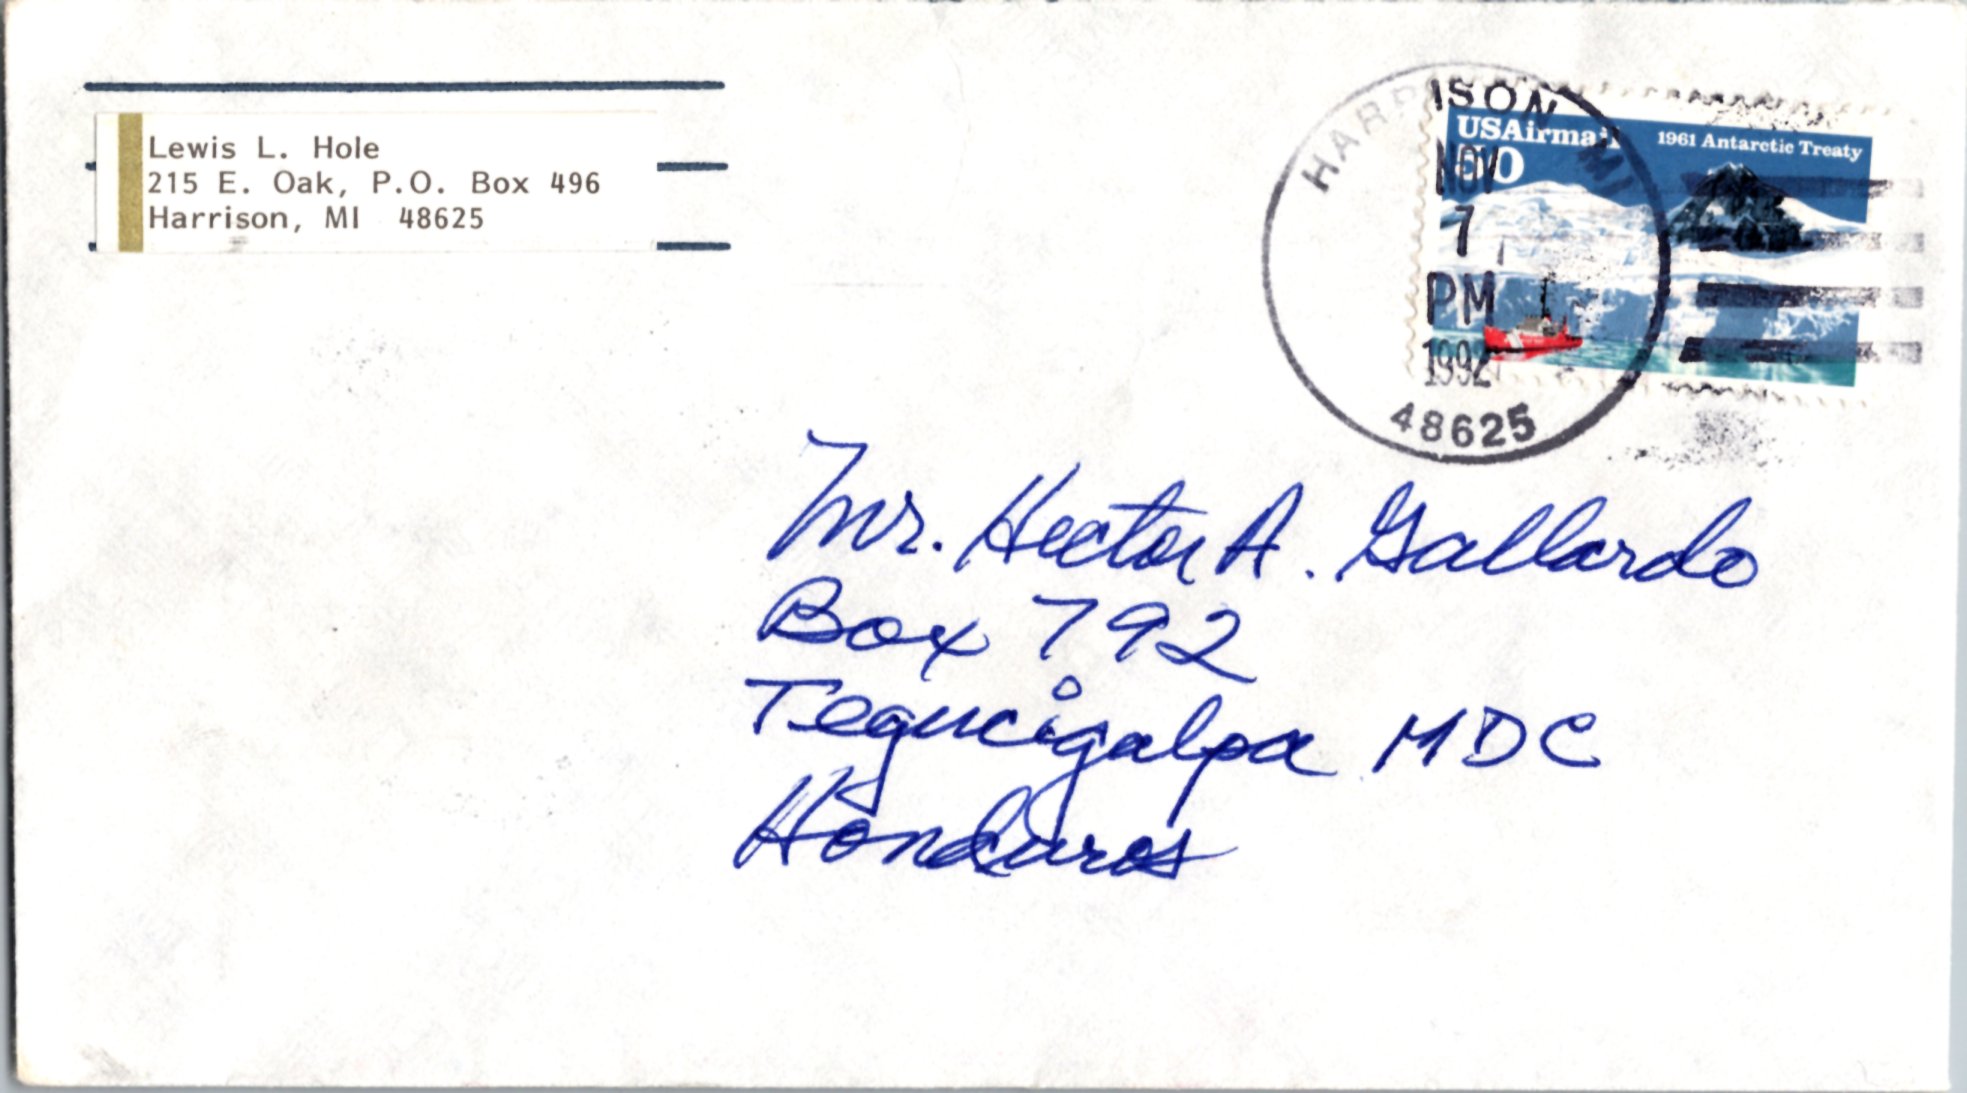 Lewis L. Hole
215 E. Oak, P.O. Box 496
Harrison, MI 48625
HARRISON MI
NOV
7
PM
1992
48625
USAirmail
1961 Antarctic Treaty
Mr. Hector A. Gallardo
Box 792
Tegucigalpa MDC
Honduras